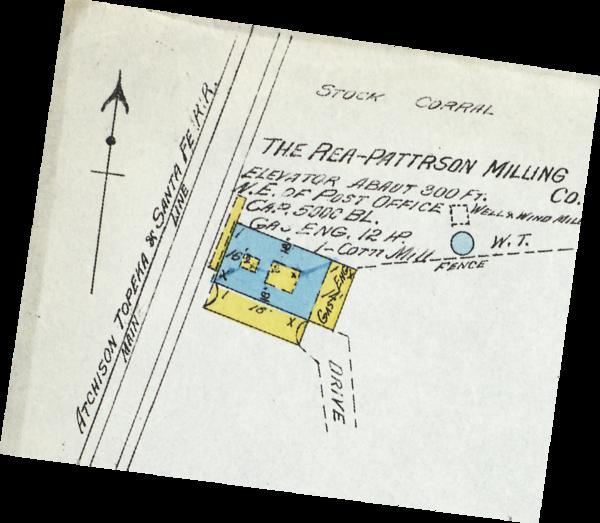 STOCK CORRAL
THE REA-PATTRSON MILLING
CO.
ELEVATOR ABAUT 300 FT.
N.E. OF POST OFFICE
CAP. 5000 BL.
GAS. ENG. 12 H.P.
1-CORN MILL
WELL & WIND MILL
W.T.
FENCE
ATCHISON TOPEKA & SANTA FE R.R.
MAIN LINE
16'
18'
18'
1
GAS. ENG.
X
1
16'
X
DRIVE